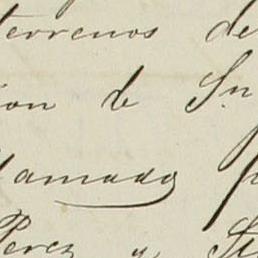 terrenos de
ion de Sn
llamado
Perez y